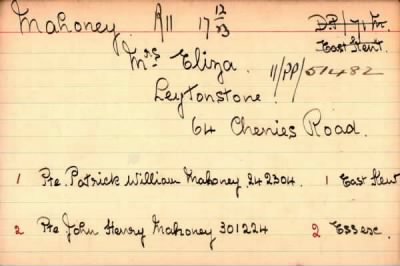 Mahoney. A11 17 12/23 D.P./71/M.
East Kent.
Mrs Eliza. 11/PP/51482
Leytonstone.
64 Chenies Road.
1 Pte. Patrick William Mahoney 242304. 1 East Kent
2 Pte John Henry Mahoney 301224 2 Essex.